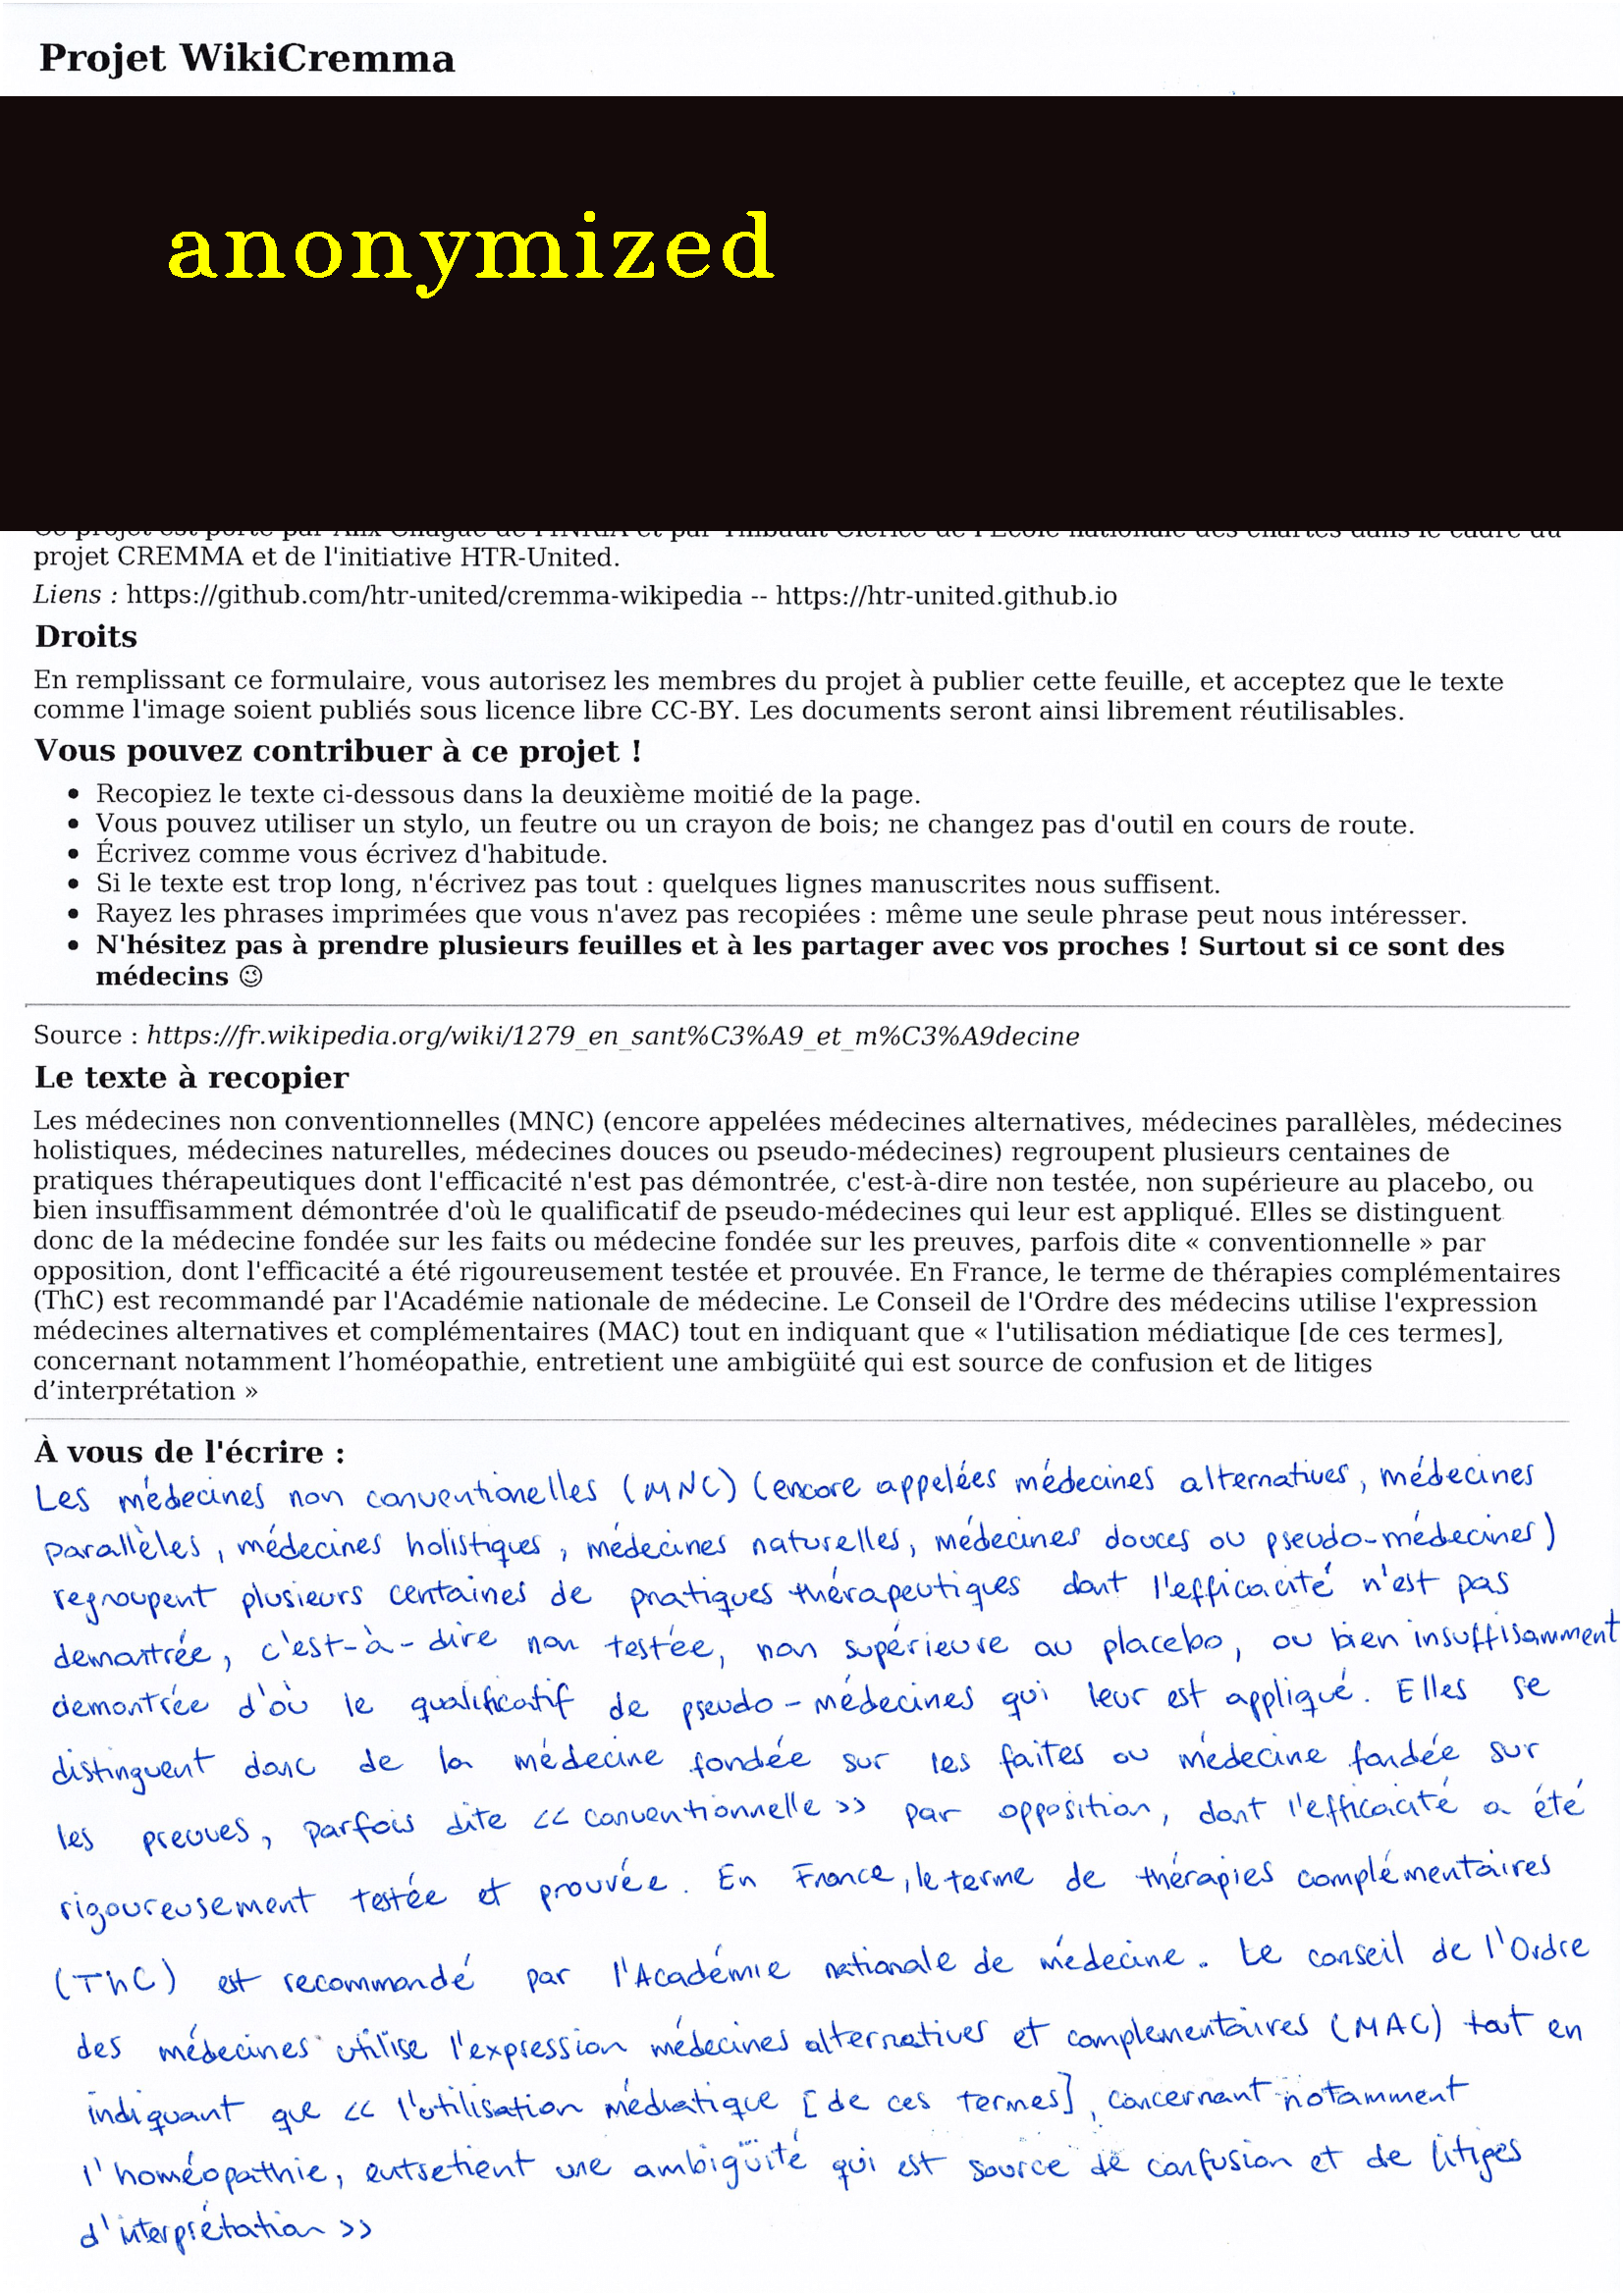 Projet WikiCremma
anonymized
Ce projet est porté par Alix Chagué de l'INRIA et par Thibault Clérice de l'École nationale des chartes dans le cadre du
projet CREMMA et de l'initiative HTR-United.
Liens : https://github.com/htr-united/cremma-wikipedia -- https://htr-united.github.io
Droits
En remplissant ce formulaire, vous autorisez les membres du projet à publier cette feuille, et acceptez que le texte
comme l'image soient publiés sous licence libre CC-BY. Les documents seront ainsi librement réutilisables.
Vous pouvez contribuer à ce projet !
• Recopiez le texte ci-dessous dans la deuxième moitié de la page.
• Vous pouvez utiliser un stylo, un feutre ou un crayon de bois; ne changez pas d'outil en cours de route.
• Écrivez comme vous écrivez d'habitude.
• Si le texte est trop long, n'écrivez pas tout : quelques lignes manuscrites nous suffisent.
• Rayez les phrases imprimées que vous n'avez pas recopiées : même une seule phrase peut nous intéresser.
• N'hésitez pas à prendre plusieurs feuilles et à les partager avec vos proches ! Surtout si ce sont des
médecins 😉
Source : https://fr.wikipedia.org/wiki/1279_en_sant%C3%A9_et_m%C3%A9decine
Le texte à recopier
Les médecines non conventionnelles (MNC) (encore appelées médecines alternatives, médecines parallèles, médecines
holistiques, médecines naturelles, médecines douces ou pseudo-médecines) regroupent plusieurs centaines de
pratiques thérapeutiques dont l'efficacité n'est pas démontrée, c'est-à-dire non testée, non supérieure au placebo, ou
bien insuffisamment démontrée d'où le qualificatif de pseudo-médecines qui leur est appliqué. Elles se distinguent
donc de la médecine fondée sur les faits ou médecine fondée sur les preuves, parfois dite « conventionnelle » par
opposition, dont l'efficacité a été rigoureusement testée et prouvée. En France, le terme de thérapies complémentaires
(ThC) est recommandé par l'Académie nationale de médecine. Le Conseil de l'Ordre des médecins utilise l'expression
médecines alternatives et complémentaires (MAC) tout en indiquant que « l'utilisation médiatique [de ces termes],
concernant notamment l’homéopathie, entretient une ambigüité qui est source de confusion et de litiges
d’interprétation »
À vous de l'écrire :
Les médecines non conventionelles (MNC) (encore appelées médecines alternatives, médecines
parallèles, médecines holistiques, médecines naturelles, médecines douces ou pseudo-médecines)
regroupent plusieurs centaines de pratiques thérapeutiques dont l'efficacité n'est pas
demontrée, c'est-à-dire non testée, non supérieure au placebo, ou bien insuffisamment
demontrée d'où le qualificatif de pseudo-médecines qui leur est appliqué. Elles se
distinguent donc de la médecine fondée sur les faites ou médecine fondée sur
les preuves, parfois dite << conventionnelle >> par opposition, dont l'efficacité a été
rigoureusement testée et prouvée. En France, le terme de thérapies complémentaires
(ThC) est recommandé par l'Académie nationale de médecine. Le conseil de l'Ordre
des médecines utilise l'expression médecines alternatives et complementaires (MAC) tout en
indiquant que << l'utilisation médiatique [de ces termes], concernant notamment
l'homéopathie, entretient une ambigüité qui est source de confusion et de litiges
d'interprétation >>